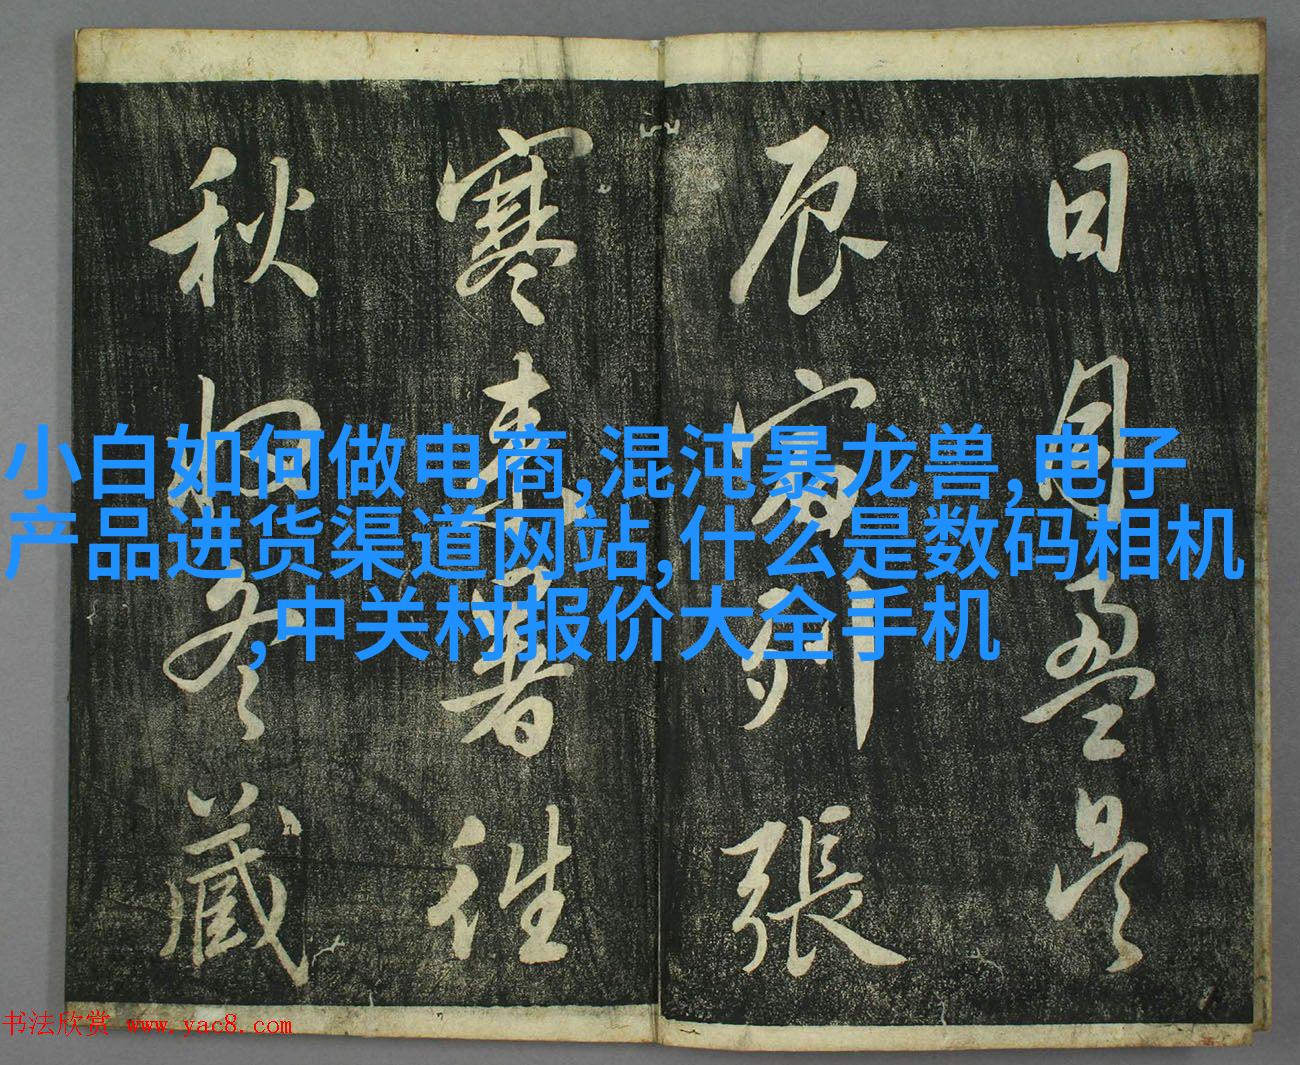 日月盈昃
辰宿列張
寒来暑往
秋收冬藏
小白如何做电商,混沌暴龙兽,电子
产品进货渠道网站,什么是数码相机
,中关村报价大全手机
书法欣赏 www.yac8.com